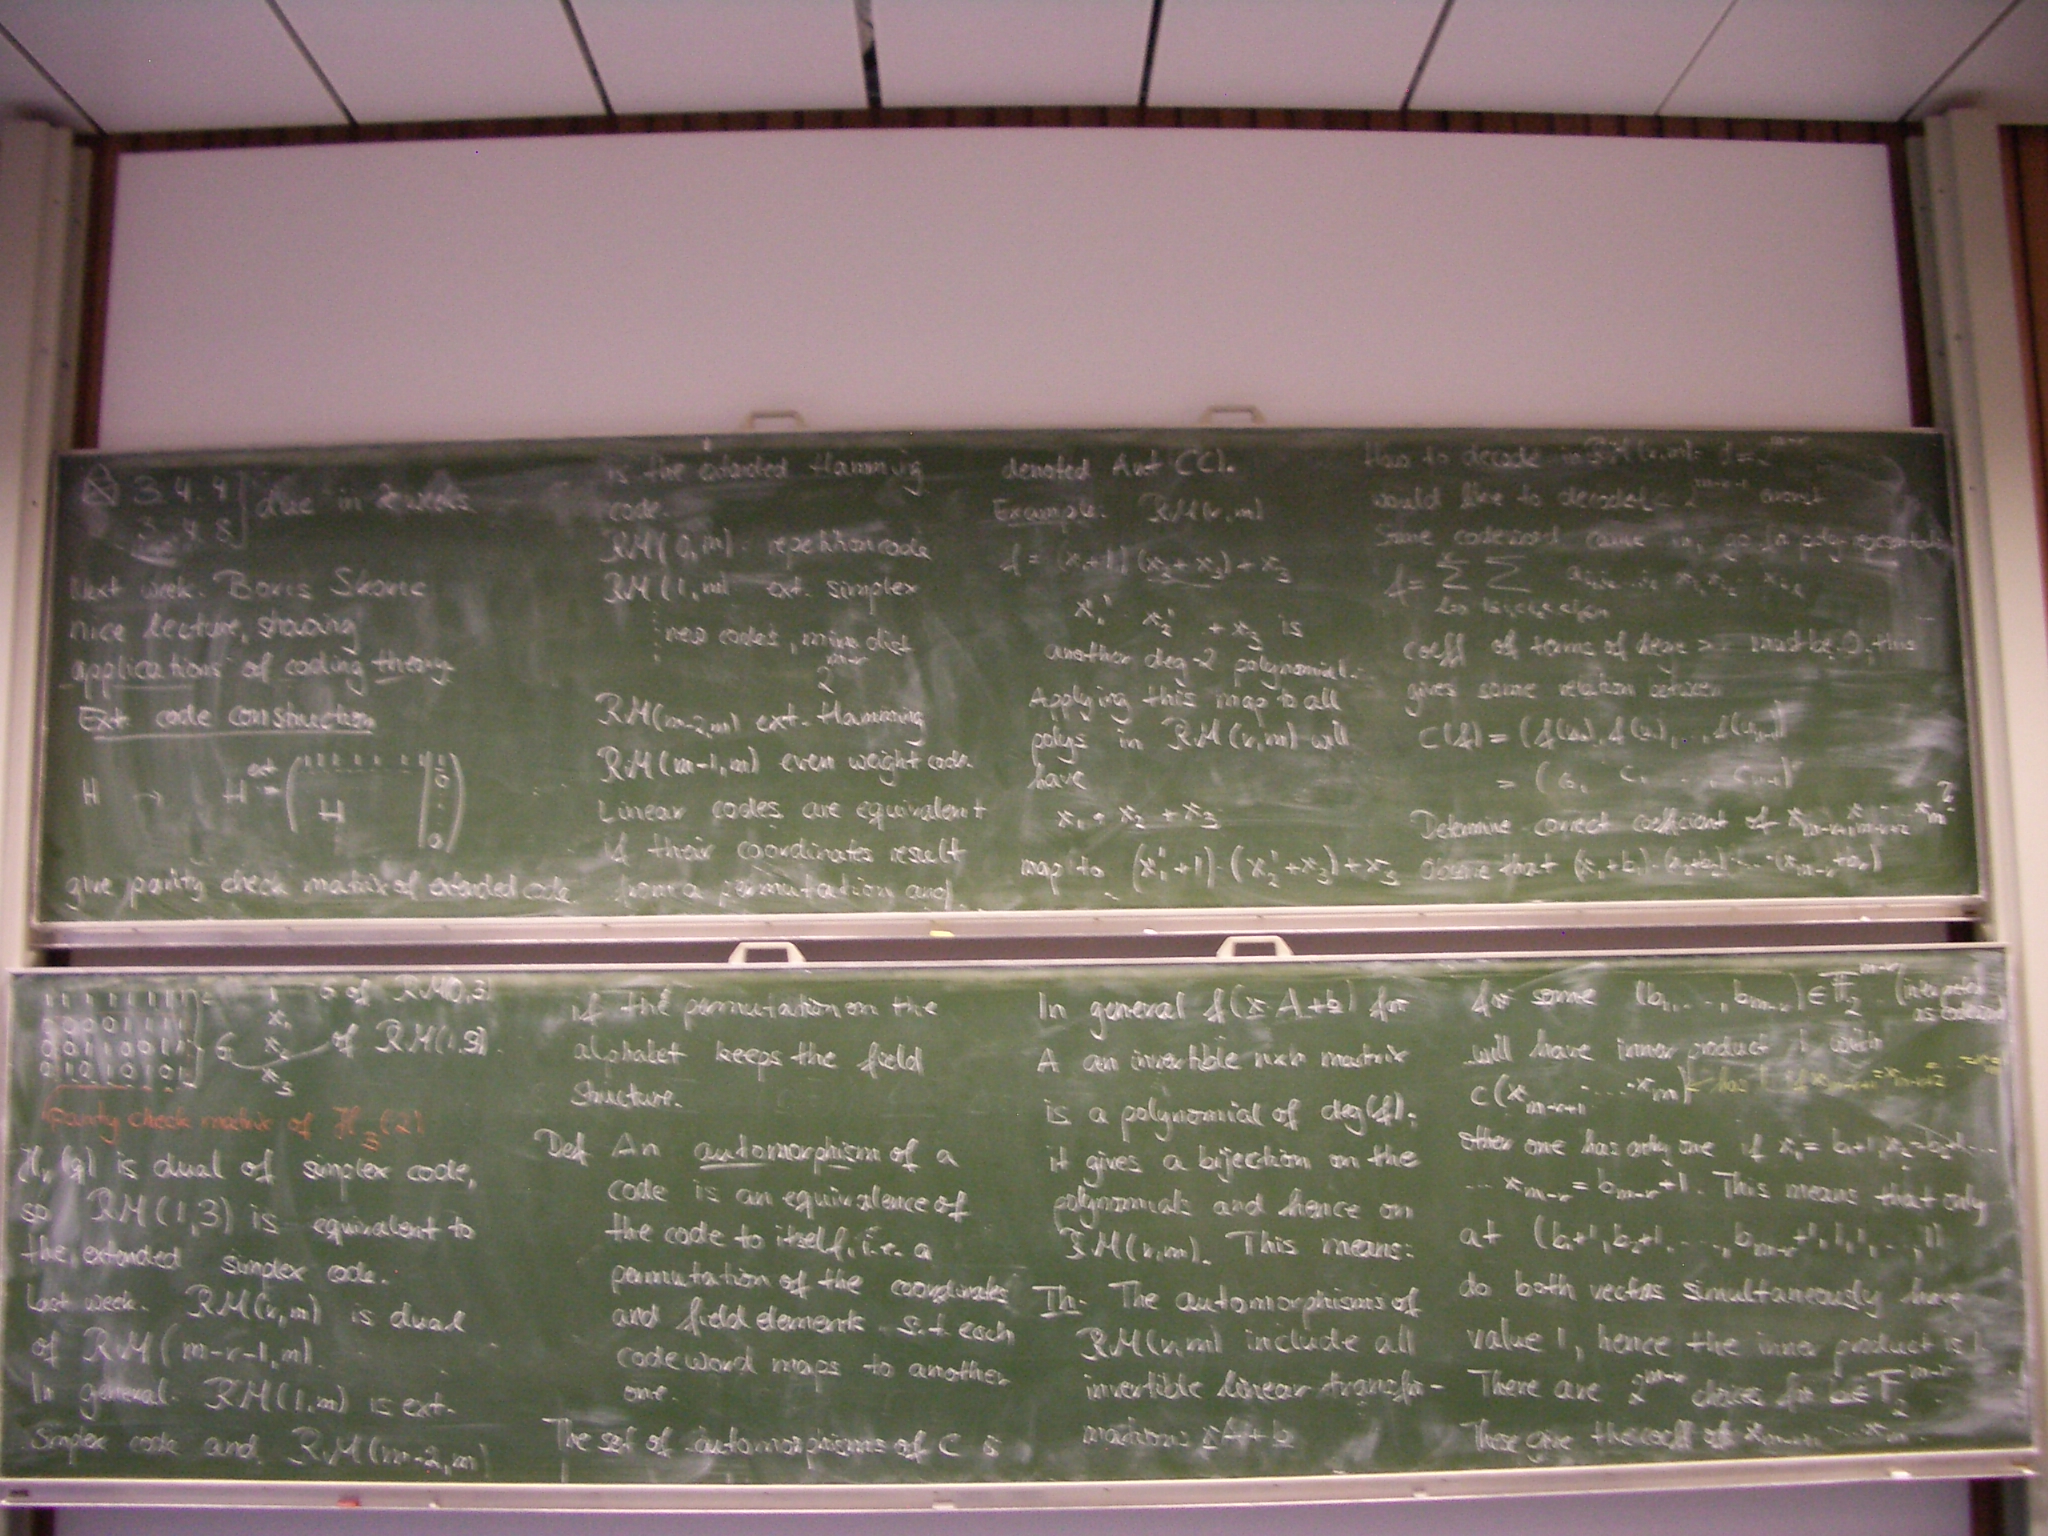 3.4.4
3.4.8
due in 2 weeks
Next week. Boris Skoric
nice lecture, showing
applications of coding theory
Ext. code construction
H → H^ext = ( 1 1 1 1 1 1 1 | 1
H | 0
0 )
give parity check matrix of extended code
1 1 1 1 1 1 1 1
0 0 0 0 1 1 1 1
0 0 1 1 0 0 1 1
0 1 0 1 0 1 0 1
G
1
x_1
x_2
x_3
G of RM(0,3)
of RM(1,3).
parity check matrix of H_3(2)
H_r(q) is dual of simplex code,
so RM(1,3) is equivalent to
the extended simplex code.
last week. RM(r,m) is dual
of RM(m-r-1,m).
In general. RM(1,m) is ext.
simplex code and RM(m-2,m)
is the extended Hamming
code.
RM(0,m): repetition code
RM(1,m) ext. simplex
new codes, min dist
2^{m-r}
RM(m-2,m) ext. Hamming
RM(m-1,m) even weight code.
Linear codes are equivalent
if their coordinates result
from a permutation and
if the permutation on the
alphabet keeps the field
structure.
Def An automorphism of a
code is an equivalence of
the code to itself, i.e. a
permutation of the coordinates
and field elements s.t. each
codeword maps to another
one.
The set of automorphisms of C is
denoted Aut(C).
Example: RM(r,m)
f = (x_1+1)(x_2+x_3)+x_3
x_1' · x_2' + x_3 is
another deg-2 polynomial.
Applying this map to all
polys in RM(r,m) will
have
x_1 · x_2 + x_3
map to (x_1'+1)·(x_2'+x_3)+x_3
In general f(xA+b) for
A an invertible n×n matrix
is a polynomial of deg(f).
it gives a bijection on the
polynomials and hence on
RM(r,m). This means:
Th. The automorphisms of
RM(r,m) include all
invertible linear transfor-
mations xA+b
How to decode in RM(r,m): d=2^{m-r}
would like to decode < 2^{m-r-1} errors
Some codeword came in, go for poly representation
f = Σ Σ
coeff of terms of degree > r must be 0, this
gives some relation between
C(f) = (f(u_0), f(u_1), ..., f(u_{n-1}))
= (c_0, c_1, ..., c_{n-1})
Determine correct coefficient of x_{m-r+1} x_{m-r+2} ... x_m?
observe that (x_1+b_1)·(x_2+b_2)·...·(x_{m-r}+b_{m-r})
for some (b_1,...,b_{m-r}) ∈ F_2^{m-r} (interpreted
as codeword)
will have inner product 1 with
c(x_{m-r+1} ... x_m) ← has 1 if x_{m-r+1} = x_{m-r+2} = ... =
other one has only one if x_1 = b_1+1, x_2 = b_2+1, ...
... x_{m-r} = b_{m-r}+1. This means that only
at (b_1+1, b_2+1, ..., b_{m-r}+1, 1, 1, ..., 1)
do both vectors simultaneously have
value 1, hence the inner product is 1
There are 2^{m-r} choices for b ∈ F_2^{m-r}
These give the coeff of x_{m-r+1} ... x_m.